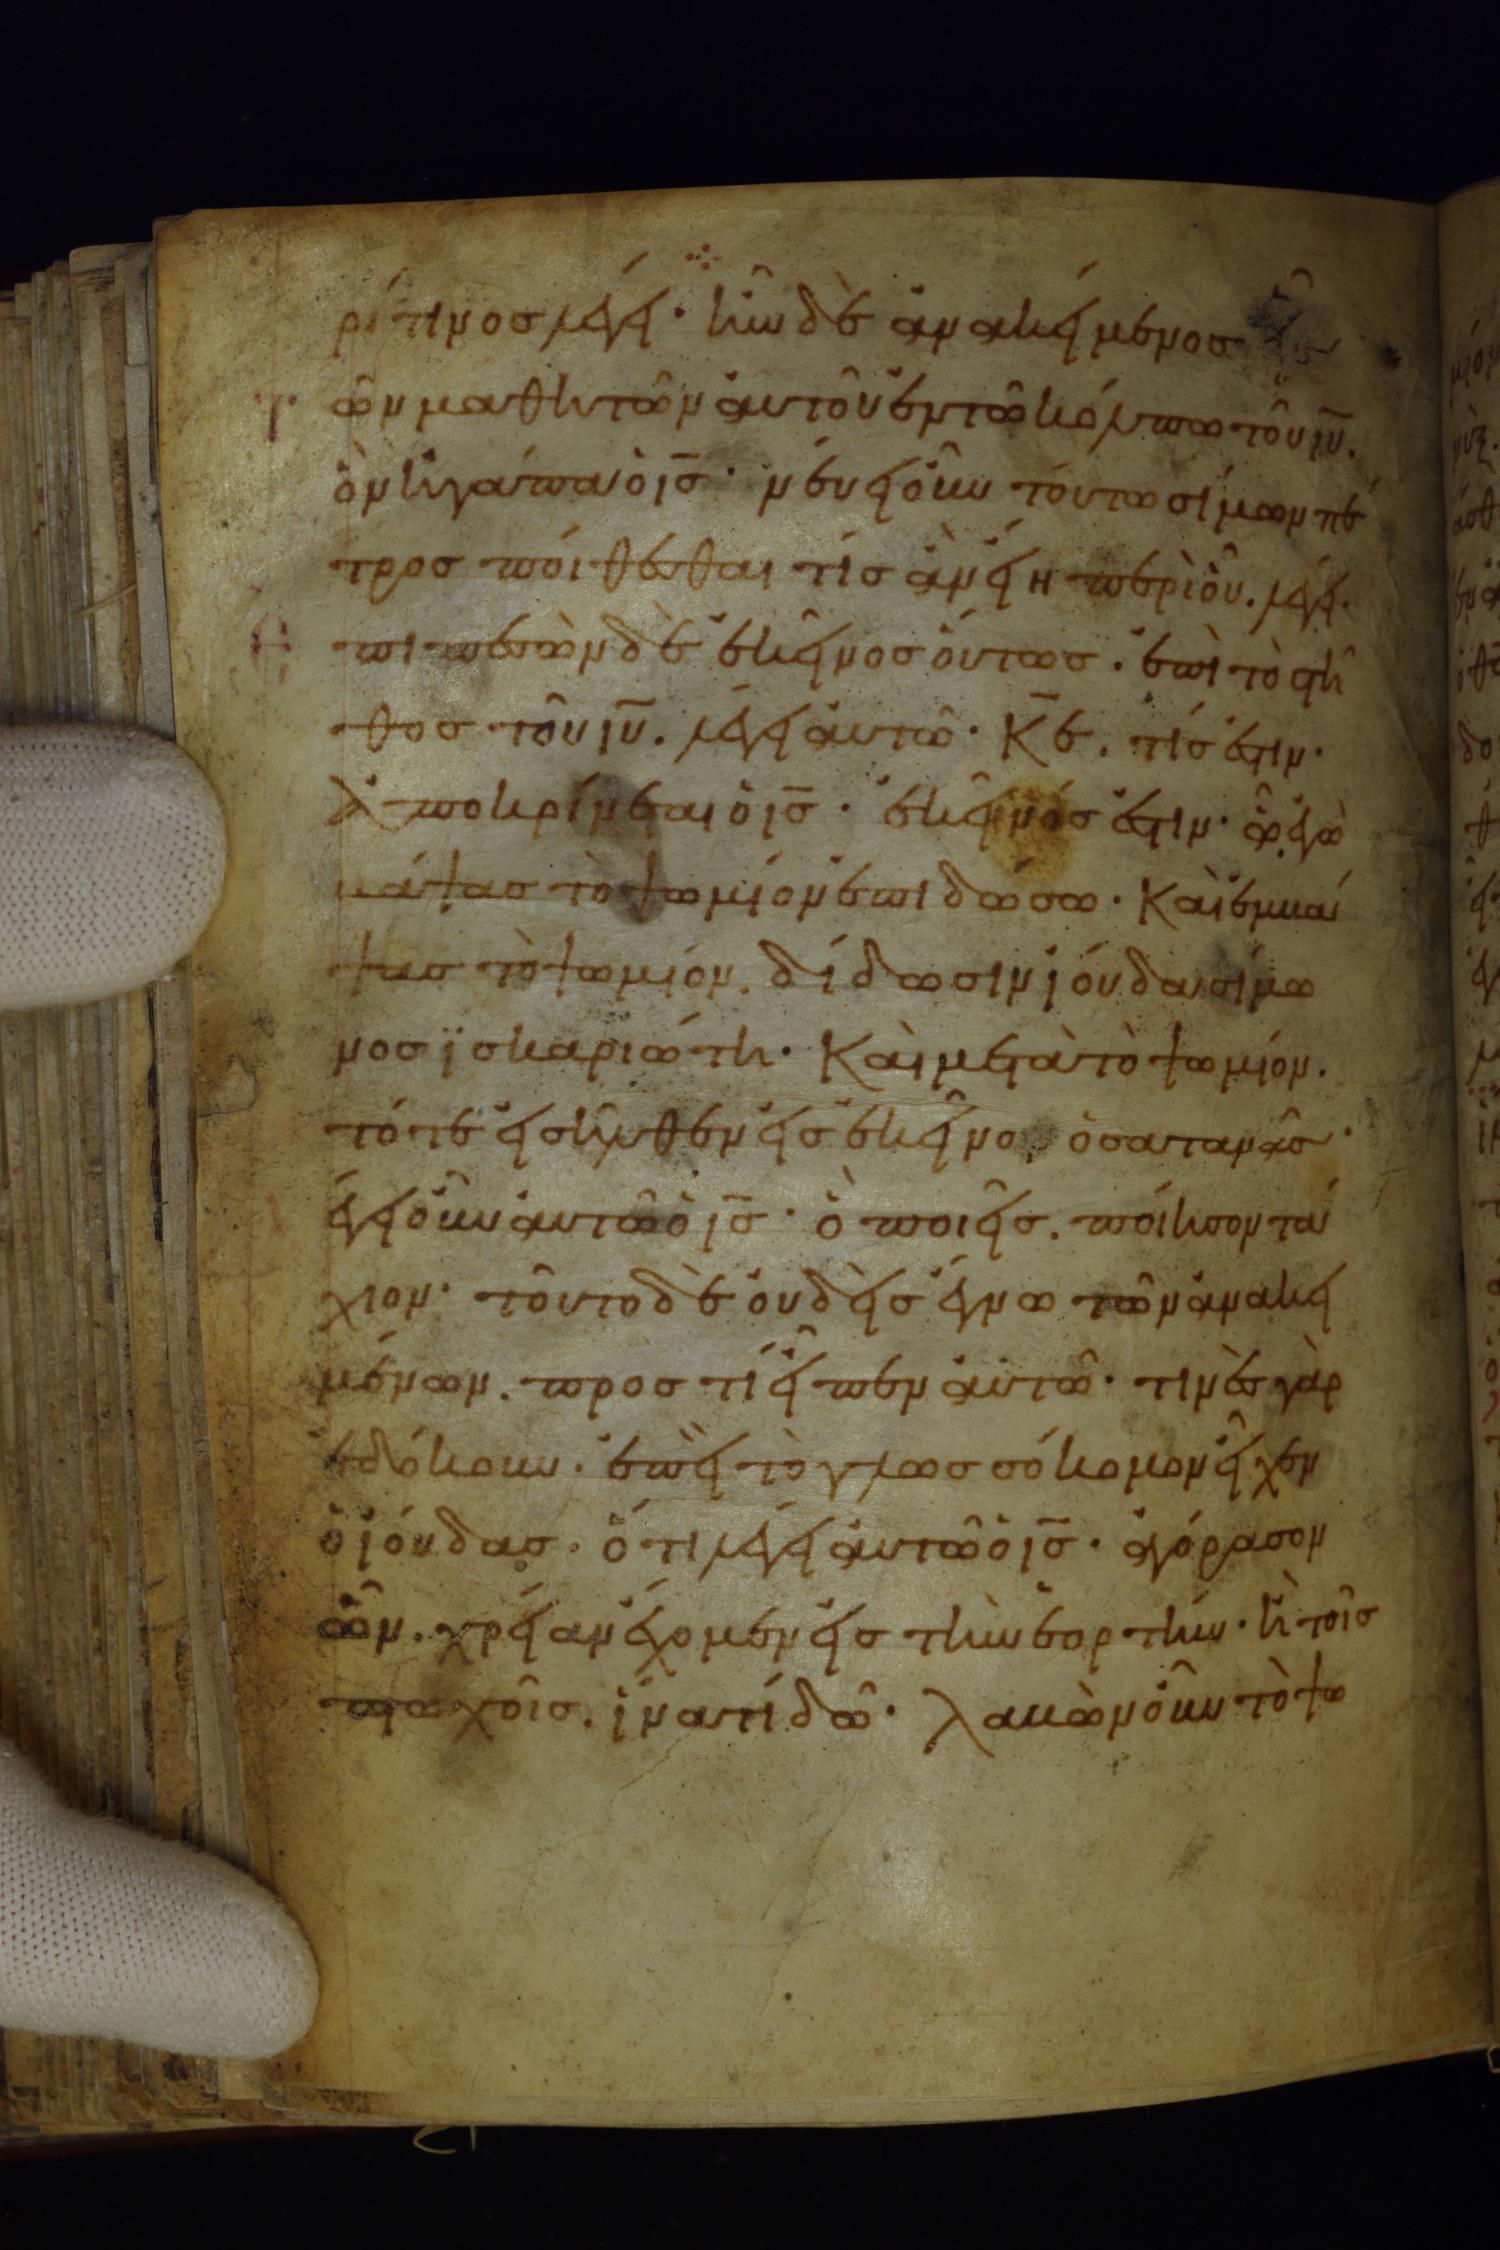 ρίτινος λέγει· ἦν δὲ ἀνακείμενος
ῶν μαθητῶν αὐτοῦ ἐν τῶ κόλπω τοῦ ιῦ.
ὃν ἠγάπα ὁ ις̄· νεύει οὖν τούτω σίμων πέ
τρος πύθεσθαι τίς ἂν εἴη περὶ οὗ. λέγει.
πιπεσὼν δὲ ἐκεῖνος οὕτως. ἐπὶ τὸ στῆ
θος τοῦ ιῦ. λέγει αὐτῶ· κε̄. τίς ἐστιν·
ἀποκρίνεται ὁ ις̄· ἐκεῖνός ἐστιν· ὧ ἐγὼ
βάψας τὸ ψωμίον ἐπιδώσω· καὶ ἐμβά
ψας τὸ ψωμίον. δίδωσιν ἰούδα σίμω
νος ϊσκαριώτη· καὶ μετὰ τὸ ψωμίον.
τότε εἰσῆλθεν εἰς ἐκεῖνον ὁ σατανᾶς·
λέγει οὖν αὐτῶ ὁ ις̄· ὃ ποιεῖς. ποίησον τά
χιον· τοῦτο δὲ οὐδεὶς ἔγνω τῶν ἀνακει
μένων. προς τί εἶπεν αὐτῶ· τινὲς γὰρ
ἐδόκουν. ἐπεὶ τὸ γλωσσόκομον εἶχεν
ὁ ἰούδας. ὅτι λέγει αὐτῶ ὁ ις̄· ἀγόρασον
ὧν. χρείαν ἔχομεν εἰς τὴν ἑορτήν· ἢ τοῖς
πτωχοῖς. ἵνα τί δῶ· λαβὼν οὖν τὸ ψω